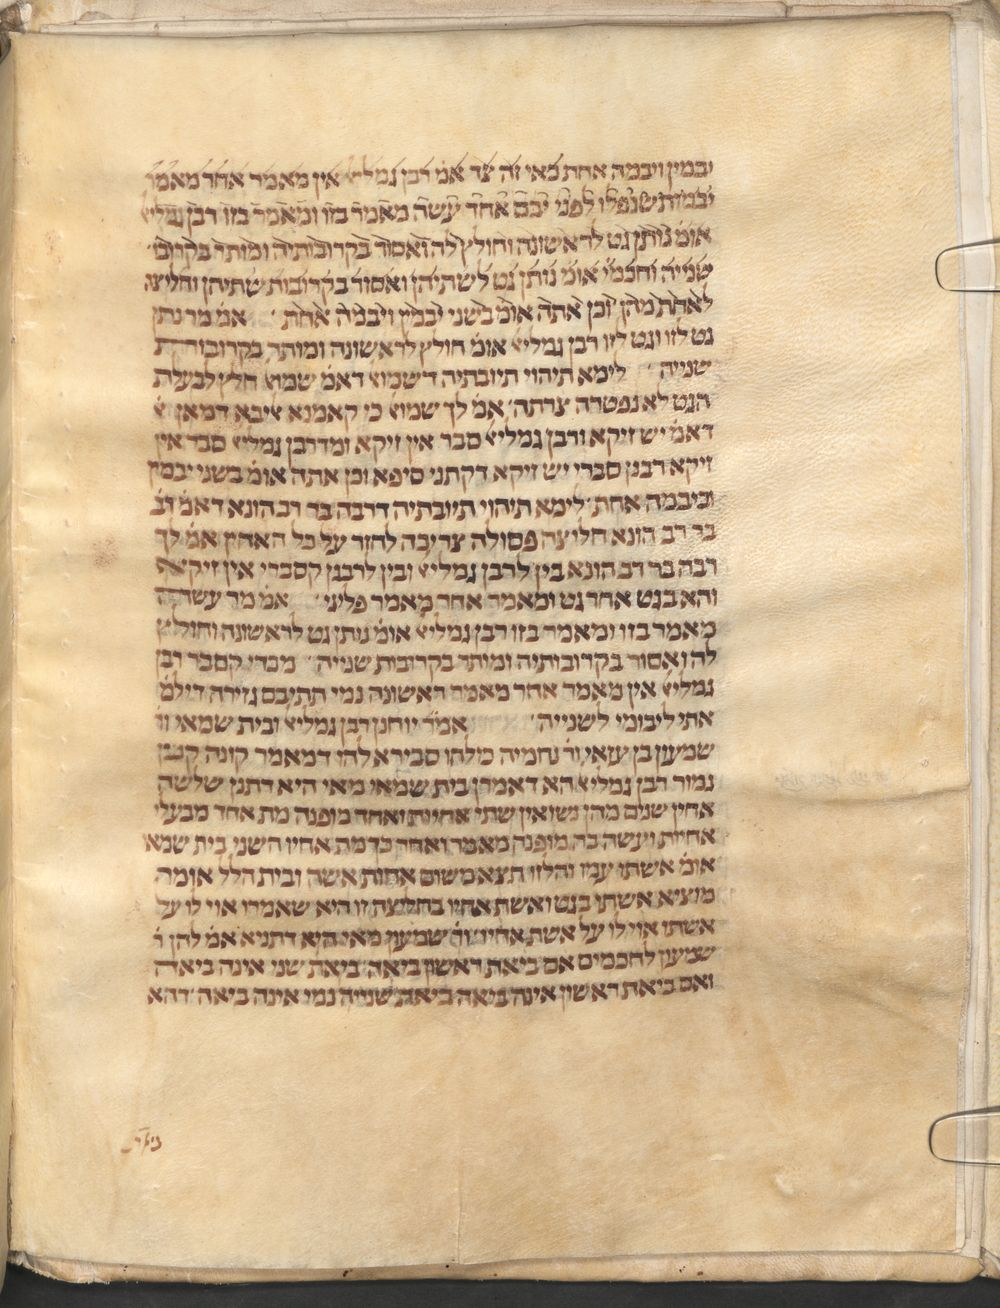 יבמין ויבמה אחת כאי זה צד אמ׳ רבן גמליא׳ אין מאמר אחר מאמר
יבמות שנפלו לפני יבם אחד עשה מאמר בזו ומאמר בזו רבן גמליא׳
אומ׳ נותן גט לראשונה וחולץ לה ואסור בקרובותיה ומותר בקרובו׳
שנייה וחכמ׳ אומ׳ נותן גט לשתיהן ואסור בקרובות שתיהן וחליצה
לאחת מהן וכן אתה אומ׳ בשני יבמין ויבמה אחת׳ אמ׳ מר נתן
גט לזו וגט לזו רבן גמליא׳ אומ׳ חולץ לראשונה ומותר בקרובות
שנייה׳ לימא תיהוי תיובתיה דשמוא׳ דאמ׳ שמוא׳ חלץ לבעלת
הגט לא נפטרה צרתה׳ אמ׳ לך שמוא׳ כי קאמנא אליבא דמאן
דאמ׳ יש זיקא ורבן גמליא׳ סבר אין זיקא ומדרבן גמליא׳ סבר אין
זיקא רבנן סברי יש זיקא דקתני סיפא וכן אתה אומ׳ בשני יבמין
וביבמה אחת׳ לימא תיהוי תיובתיה דרבה בר רב הונא דאמ׳ רב׳
בר רב הונא חליצה פסולה צריכה לחזר על כל האחין אמ׳ לך
רבה בר רב הונא בין לרבן גמליא׳ ובין לרבנן קסברי אין זיקא
והא בגט אחר גט ומאמר אחר מאמר פליגי׳ אמ׳ מר עשה
מאמר בזו ומאמר בזו רבן גמליא׳ אומ׳ נותן גט לראשונה וחולץ
לה ואסור בקרובותיה ומותר בקרובות שנייה׳ מכדי קסבר רבן
גמליא׳ אין מאמר אחר מאמר ראשונה נמי תתיבם גזירה דילמ׳
אתי ליבומי לשנייה׳ אמ׳ ר׳ יוחנן רבן גמליא׳ ובית שמאי ור׳
שמעון בן עזאי ור׳ נחמיה כולהו סבירא להו דמאמר קונה קנין
גמור רבן גמליא׳ הא דאמרן בית שמאי מאי היא דתנן שלשה
אחין שנים מהן נשואין שתי אחיות ואחד מופנה מת אחד מבעלי
אחיות ועשה בה מופנה מאמר ואחר כך מת אחיו השני בית שמאי
אומ׳ אשתו עמו והלזו תצא משום אחות אשה ובית הלל אומר׳
מוציא אשתו בגט ואשת אחיו בחליצה זו היא שאמרו אוי לו על
אשתו אוי לו על אשת אחיו ור׳ שמעון מאי היא דתניא אמ׳ להן ר׳
שמעון לחכמים אם ביאת ראשון ביאה ביאת שני אינה ביאה
ואם ביאת ראשון אינה ביאה ביאת שנייה נמי אינה ביאה׳ דהא
ביאת